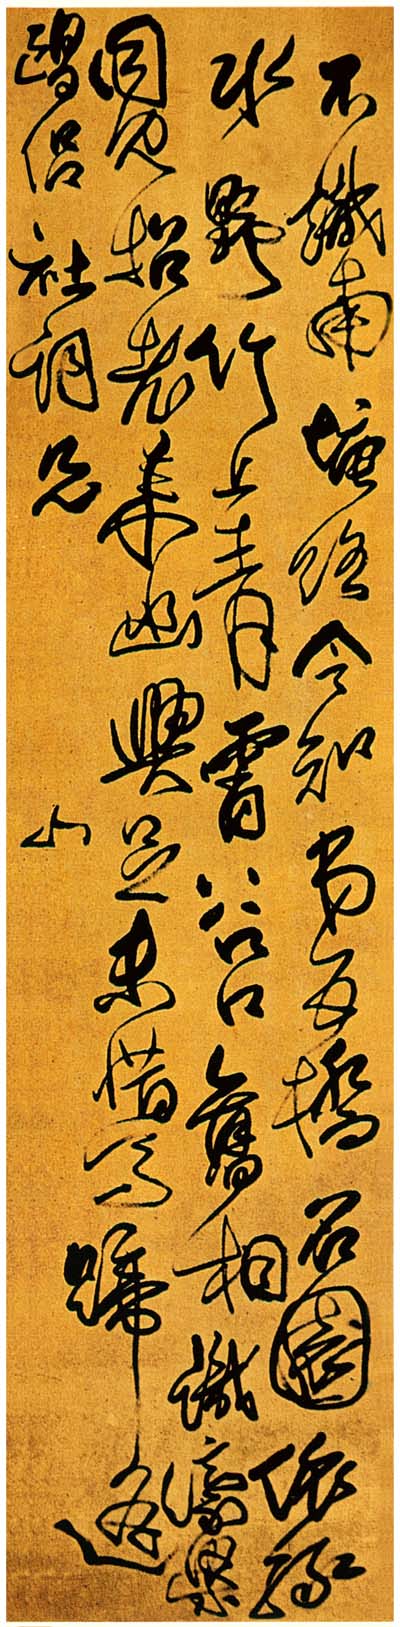 不識南塘路今知第五橋名園依綠
水野竹上青霄谷口舊相識濠梁
同見招老來幽興足未惜馬蹄遙
鷗侶社詞兄 山